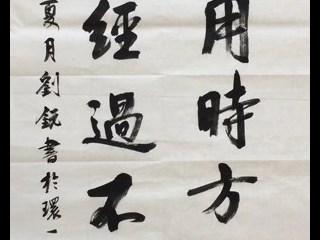 用時方
經過不
夏月劉銳書於環一